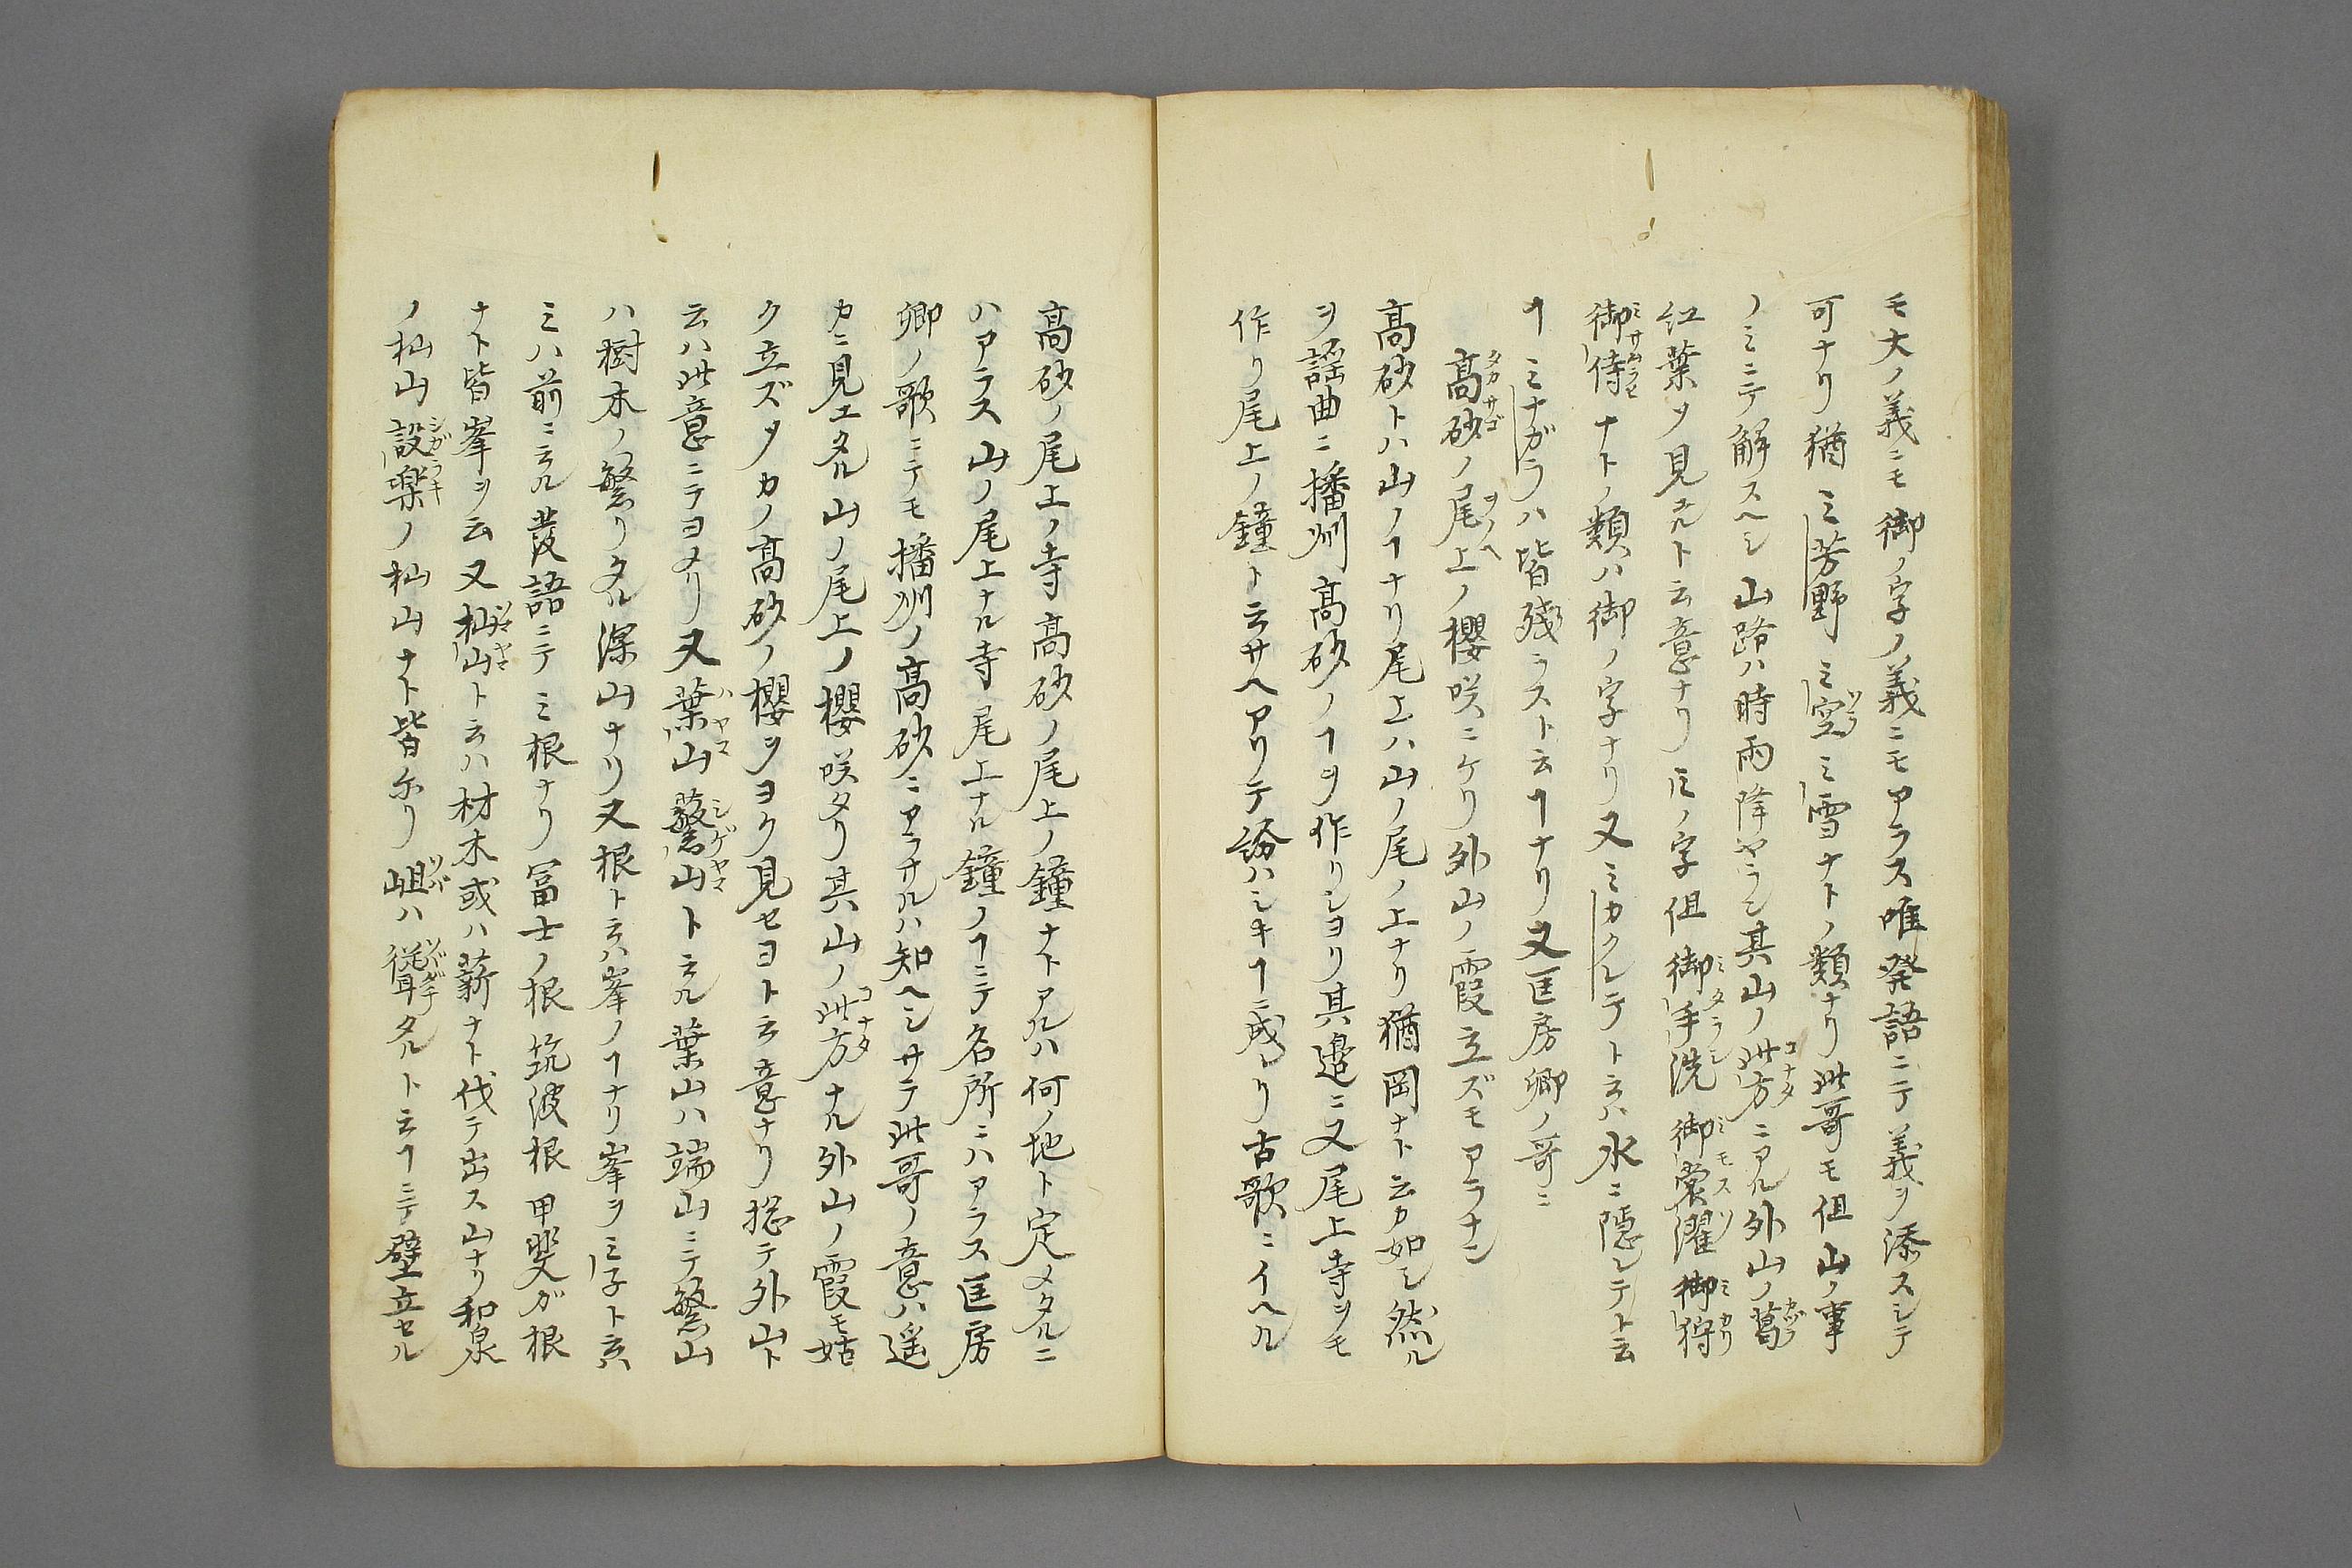 モ大ノ義ニモ御ノ字ノ義ニモアラス唯発語ニテ義ヲ添スシテ
可ナリ猶ミ芳野ミ空ミ雪ナトノ類ナリ此哥モ但山ノ事
ノミニテ解スヘシ山路ハ時雨降ヤラシ其山ノ此方ニアル外山ノ葛
紅葉タ見エルト云意ナリミノ字但御手洗御裳濯御狩
御侍ナトノ類ハ御ノ字ナリ又ミカクレテト云ハ水ニ隠レテト云
ヿミナガラハ皆残ラスト云ヿナリ又匡房卿ノ哥ニ
高砂ノ尾上ノ櫻咲ニケリ外山ノ霞立ズモアラナン
高砂トハ山ノヿナリ尾上ハ山ノ尾ノ上ナリ猶岡ナト云カ如シ然ル
ヲ謡曲ニ播州高砂ノヿヲ作リシヨリ其邊ニ又尾上寺ヲモ
作リ尾上ノ鐘ト云サヘアリテ論ハシキヿニ成リ古歌ニイヘル
高砂ノ尾上ノ寺高砂ノ尾上ノ鐘ナトアルハ何ノ地ト定メタルニ
ハアラス山ノ尾上ナル寺尾上ナル鐘ノヿニテ名所ニハアラス匡房
卿ノ歌ニテモ播州ノ高砂ニアラサルハ知ヘシサテ此哥ノ意ハ遥
カニ見エタル山ノ尾上ノ櫻咲タリ其山ノ此方ナル外山ノ霞モ姑
ク立ズタカノ高砂ノ櫻ヲヨク見セヨト云意ナリ捴テ外山ト
云ハ此意ニテヨメリ又葉山蘩山ト云ル葉山ハ端山ニテ繁山
ハ樹木ノ繁リタル深山ナリ又根ト云ハ峯ノヿナリ峯ヲミ子ト云ハ
ミハ前ニ云ル發語ニテミ根ナリ冨士ノ根筑波根甲斐ガ根
ナト皆峯ヲ云又杣山ト云ハ材木或ハ薪ナト伐テ出ス山ナリ和泉
ノ杣山設楽ノ杣山ナト皆尓リ岨ハ聳タルト云ヿニテ壁立セル